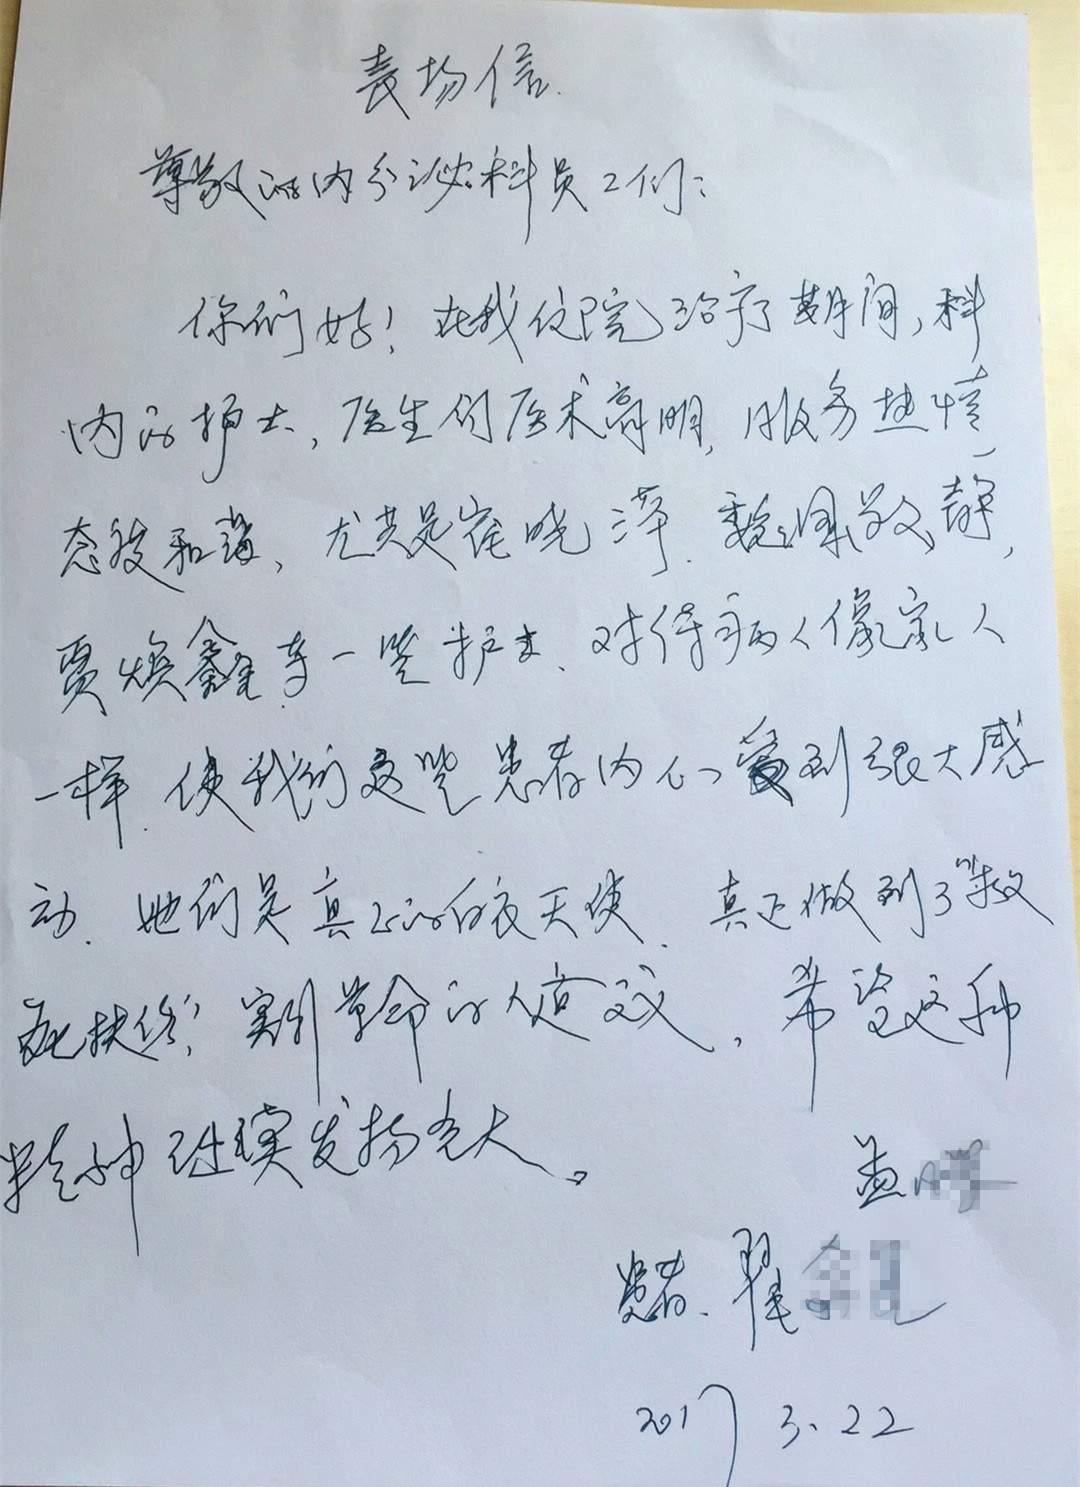 表扬信.
尊敬的内分泌科员工们:
你们好!在我住院治疗期间,科
内的护士,医生们医术高明,服务热情、
态度和蔼,尤其是崔晓萍、魏佩、敬静,
贾焕鑫等一些护士、对待病人像家人
一样.使我们这些患者内心受到很大感
动.她们是真正的白衣天使、真正做到了"救
死扶伤",实行革命的人道主义,希望这种
精神继续发扬光大。
孟
患者、翟
2017 3.22